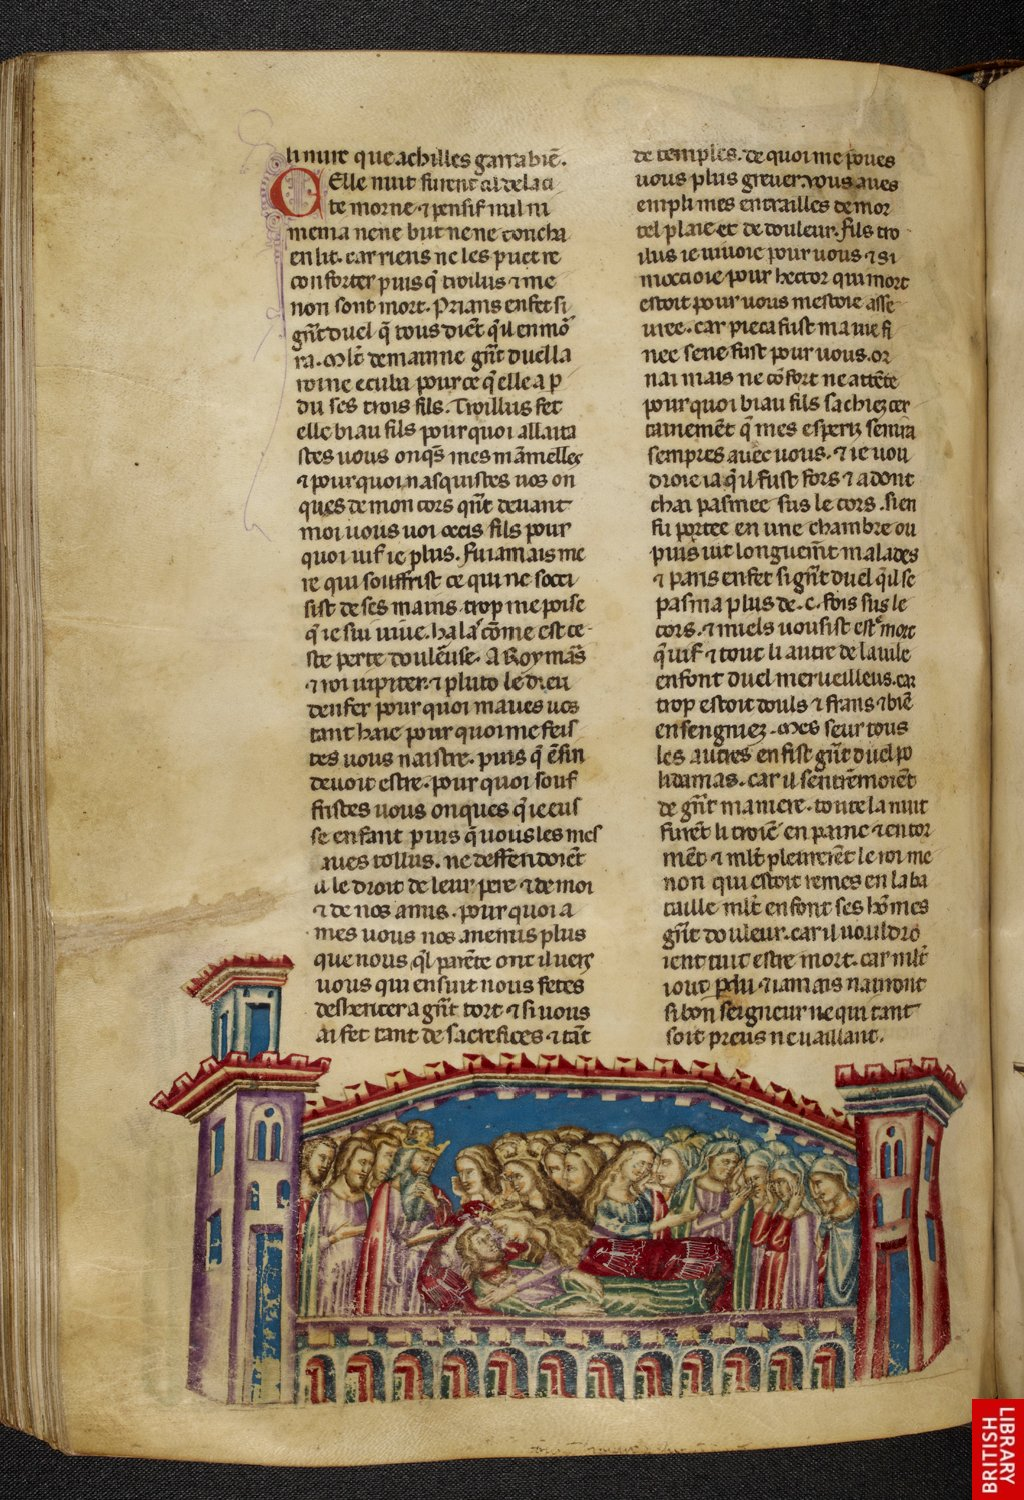 li nuit que achilles garra biē.
Celle nuit furent cil de la ci
te morne ⁊ pensif nul ni
menia ne ne but ne ne coucha
en lit. car riens ne les puet re
conforter puis q̄ troilus ⁊ me
non sont mort. Prians en fet si
gn̄t duel q̄ tous diēt q̄l en mō
ra. Ml̄t demainne gn̄t duel la
roine ecuba pour ce q̄ elle a p
du ses trois fils. Troillus fet
elle biau fils pour quoi allaita
stes vous onq̄s mes māmelles
⁊ pour quoi nasquistes vos on
ques de mon cors qn̄t devant
moi vous voi occis fils pour
quoi vif ie plus. fu iamais me
re qui souffrist ce qui ne socci
sist de ses mains trop me poise
q̄ ie sui vive. ha la cōme est ce
ste perte doulēuse. A Roy mās
⁊ roi iupiter ⁊ pluto le dieu
denfer pour quoi maves vos
tant haie pour quoi me feis
tes vous naistre. puis q̄ ēsin
devoit estre. pour quoi souf
fristes vous onques q̄ ie eus
se enfant puis q̄ vous les mes
aves tollus. ne deffendoiēt
il le droit de leur pere ⁊ de moi
⁊ de nos amis. pour quoi a
mes vous nos anemis plus
que nous q̄l parēte ont il vers
vous qui ensuit nous fetes
desheriter a gn̄t tort ⁊ si vous
ai fet tant de sacrefices ⁊ tāt
de temples. de quoi me poves
vous plus grever. vous aves
empli mes entrailles de mor
tel plaie et de douleur. fils tro
ilus ie vivoie pour vous ⁊ si
mocioie pour hector qui mort
estoit pour vous mestoie asse
uree. car pieca fust ma vie fi
nee se ne fust pour vous. or
nai mais ne cōfort ne attēte
pour quoi biau fils sachiez cer
tainemēt q̄ mes esperiz se nira
sempres avec vous. ⁊ ie vou
droie ia q̄ il fust fors ⁊ adont
chai pasmee sus le cors. si en
fu portee en une chambre ou
puis iut longuemt̄ malades
⁊ paris en fet si gn̄t duel q̄ il se
pasma plus de .c. fois sus le
cors. ⁊ miels vousist est̄ mort
q̄ vif ⁊ tout li autre de la vile
en font duel merveilleus. car
trop estoit douls ⁊ frans ⁊ biē
ensengniez. Mes seur tous
les autres en fist gn̄t duel po
lidamas. car il sentrēmoiēt
de gn̄t maniere. toute la nuit
furēt li troiē en paine ⁊ en tor
mēt ⁊ ml̄t pleurerēt le roi me
non qui estoit remes en la ba
taille ml̄t en font ses hōmes
gn̄t douleur. car il vouldro
ient tuit estre mort. car ml̄t
i out pdu ⁊ iamais nauront
si bon seigneur ne qui tant
soit preus ne vaillant.
BRITISH
LIBRARY